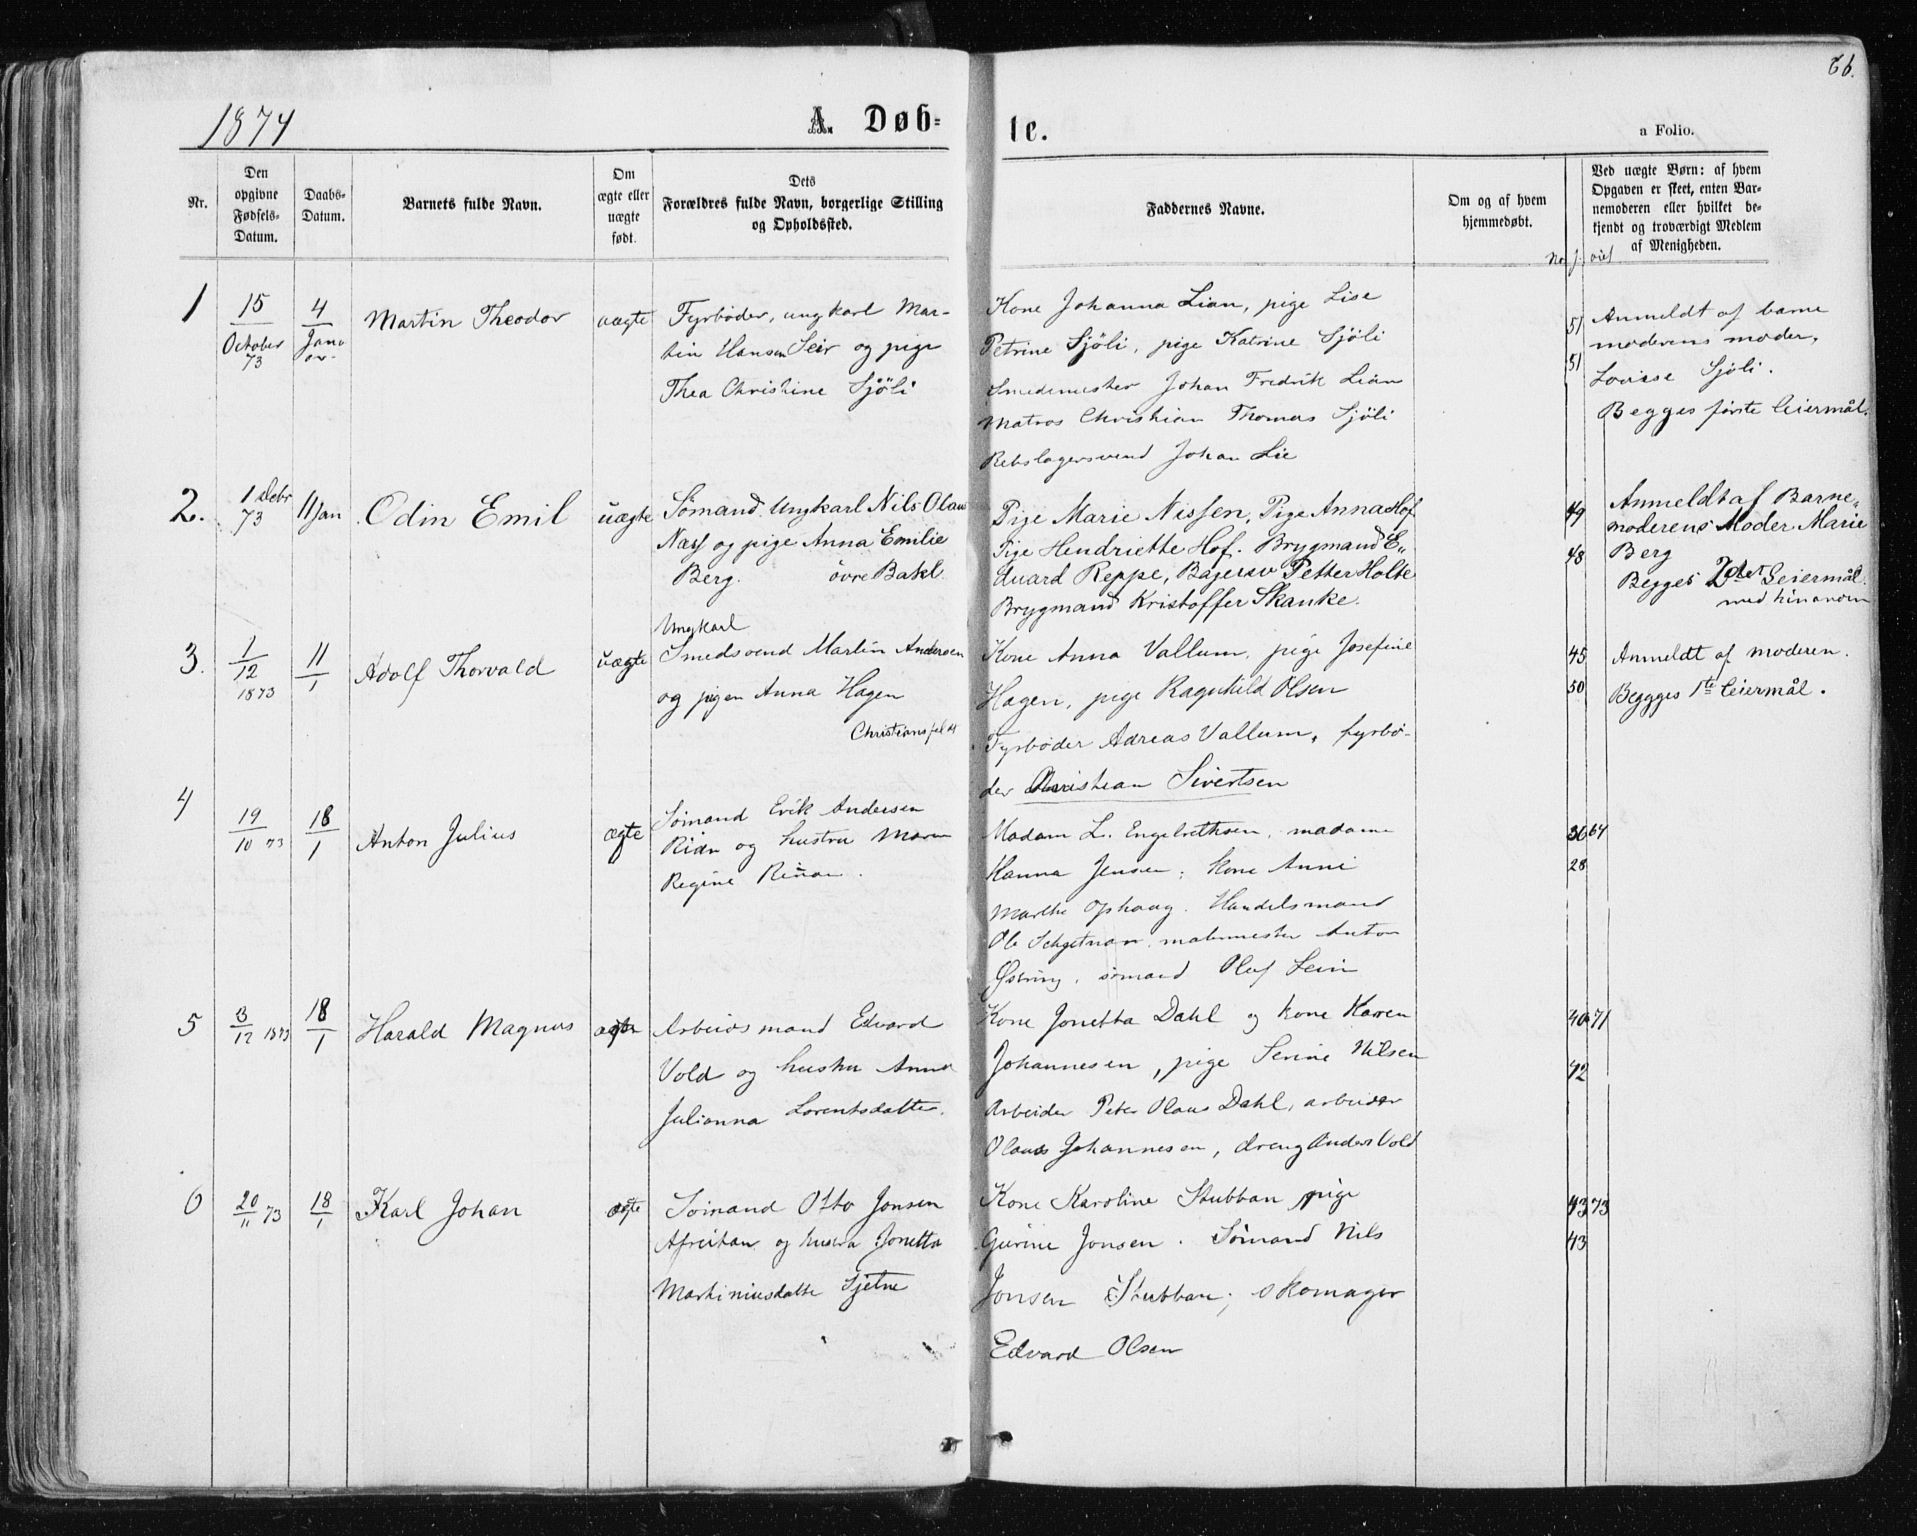 66.
1874
A. Døb-
te.
a Folio.
Nr.
Den
opgivne
Fødsels-
Datum.
Daabs-
Datum.
Barnets fulde Navn.
Om
ægte eller
uægte
født.
Dets
Forældres fulde Navn, borgerlige Stilling
og Opholdssted.
Faddernes Navne.
Om og af hvem
hjemmedøbt.
Ved uægte Børn: af hvem
Opgaven er skeet, enten Bar-
nemoderen eller hvilket be-
kjendt og troværdigt Medlem
af Menigheden.
1
15
October
73
4
Janu
ar
Martin Theodor
uægte
Fyrbøder, ungkarl Mar-
tin Hansen Seir og pige
Thea Christine Sjöli
Kone Johanna Lian, pige Lise
Petrine Sjöli, pige Katrine Sjöli
Smedemester Johan Fredrik Lian
Matros Christian Thomas Sjöli
Rebslagersvend Johan Lie
51
51
Anmeldt af barne
moderens moder,
Lovise Sjöli.
Begges første leiermål.
2.
1 Debr
73
11 Jan
Odin Emil
uægte
Sømand Ungkarl Nils Olaus
Næss og pige Anna Emilie
Berg. övre Bakl.
Pige Marie Nissen, Pige Anna Hof
Pige Hendriette Hof. Brygmand E„
duard Reppe, Bagersv Petter Holte
Brygmand Kristoffer Skanke.
49
48
Anmeldt af Barne„
moderens Moder Marie
Berg
Begges 2det Leiermål
med hinanden
3.
1
12
1873
11
1
Adolf Thorvald
uægte
Ungkarl
Smedsvend Martin Andersen
og pigen Anna Hagen
Christiansfeldt
Kone Anna Vallum, pige Josefine
Hagen, pige Ragnhild Olsen
Fyrbøder Adreas Vallum, fyrbø-
der Christian Sivertsen
45
50
Anmeldt af moderen.
Beggges 1te leiermål.
4
19
10 73
18
1
Anton Julius
ægte
Sømand Erik Andersen
Rian og hustru Maren
Regine Rian.
Madam L. Engelrethsen, madame
Hanna Jensen, kone Anne
Marthe Ophaug. Handelsmand
Ole Selgetnan, malermester Anton
Østring, sømand Oluf Lein
36 64
28
5
3
12 1873
18
1
Harald Magnus
ægte
Arbeidsmand Edvard
Vold og hustru Anna
Julianna Lorentsdatter.
Kone Jonetta Dahl og kone Karen
Johannesen, pige Serine Nilsen
Arbeider Peter Olaus Dahl, arbeider
Olaus Johannesen, dreng Anders Vold
40 71
42
6
20
11 73
18
1
Karl Johan
ægte
Sömand Otto Jonsen
og hustru Jonetta
Martiniusdatte Sjetne
Kone Karoline Stubban pige
Gurine Jonsen. Sömand Nils
Jonsen Stubban, skomager
Edvard Olsen
43 73
43